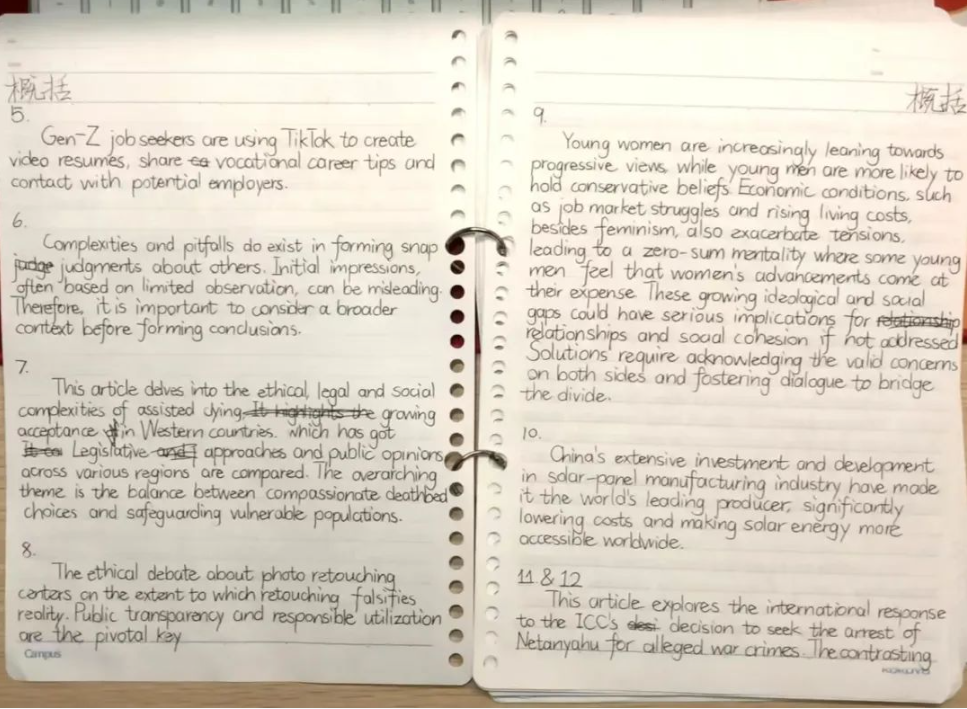 概括
5.
Gen-Z job seekers are using TikTok to create
video resumes, share to vocational career tips and
contact with potential employers.
6.
Complexities and pitfalls do exist in forming snap
judge judgments about others. Initial impressions,
often based on limited observation, can be misleading.
Therefore, it is important to consider a broader
context before forming conclusions.
7.
This article delves into the ethical, legal and social
complexities of assisted dying. It highlights the growing
acceptance in Western countries. which has got
Legislative and approaches and public opinions
across various regions are compared. The overarching
theme is the balance between compassionate deathbed
choices and safeguarding vulnerable populations.
8.
The ethical debate about photo retouching
centers on the extent to which retouching falsifies
reality. Public transparency and responsible utilization
are the pivotal key
Campus
概括
9.
Young women are increasingly leaning towards
progressive views, while young men are more likely to
hold conservative beliefs. Economic conditions, such
as job market struggles and rising living costs,
besides feminism, also exacerbate tensions,
leading to a zero-sum mentality where some young
men feel that women's advancements come at
their expense. These growing ideological and social
gaps could have serious implications for relationship
relationships and social cohesion if not addressed
Solutions require acknowledging the valid concerns
on both sides and fostering dialogue to bridge
the divide.
10.
China's extensive investment and development
in solar-panel manufacturing industry have made
it the world's leading producer, significantly
lowering costs and making solar energy more
accessible worldwide.
11 & 12
This article explores the international response
to the ICC's desi decision to seek the arrest of
Netanyahu for alleged war crimes. The contrasting
KOKUYO